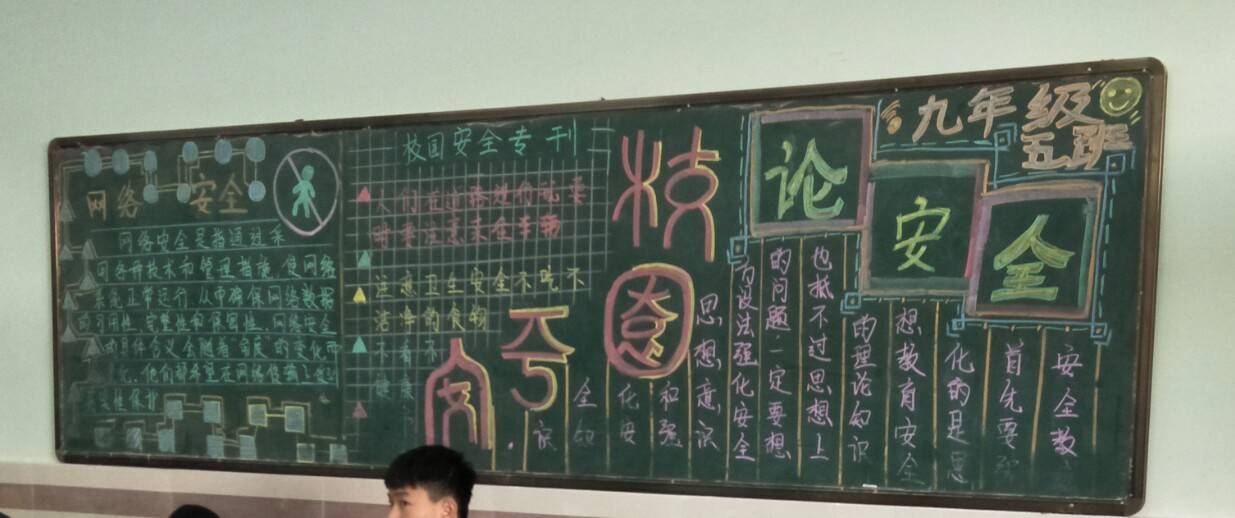 网络 安全
网络安全是指通过采
用各种技术和管理措施,使网络
系统正常运行,从而确保网络数据
的可用性、完整性和保密性。网络安全
的具体含义会随着"角度"的变化而
变化。他们都希望在网络传输
校园安全专刊
人们在道路
时要注意来金车辆
注意卫生安全不吃不
洁净的食物
不看不
健康
校园安
九年级
五班
论安全
安全教
首先要
化的是思
想教育安全
的理论知识
也抵不过思想上
的问题一定要想
方设法强化安全
思想意识
和强
化安
全知
识